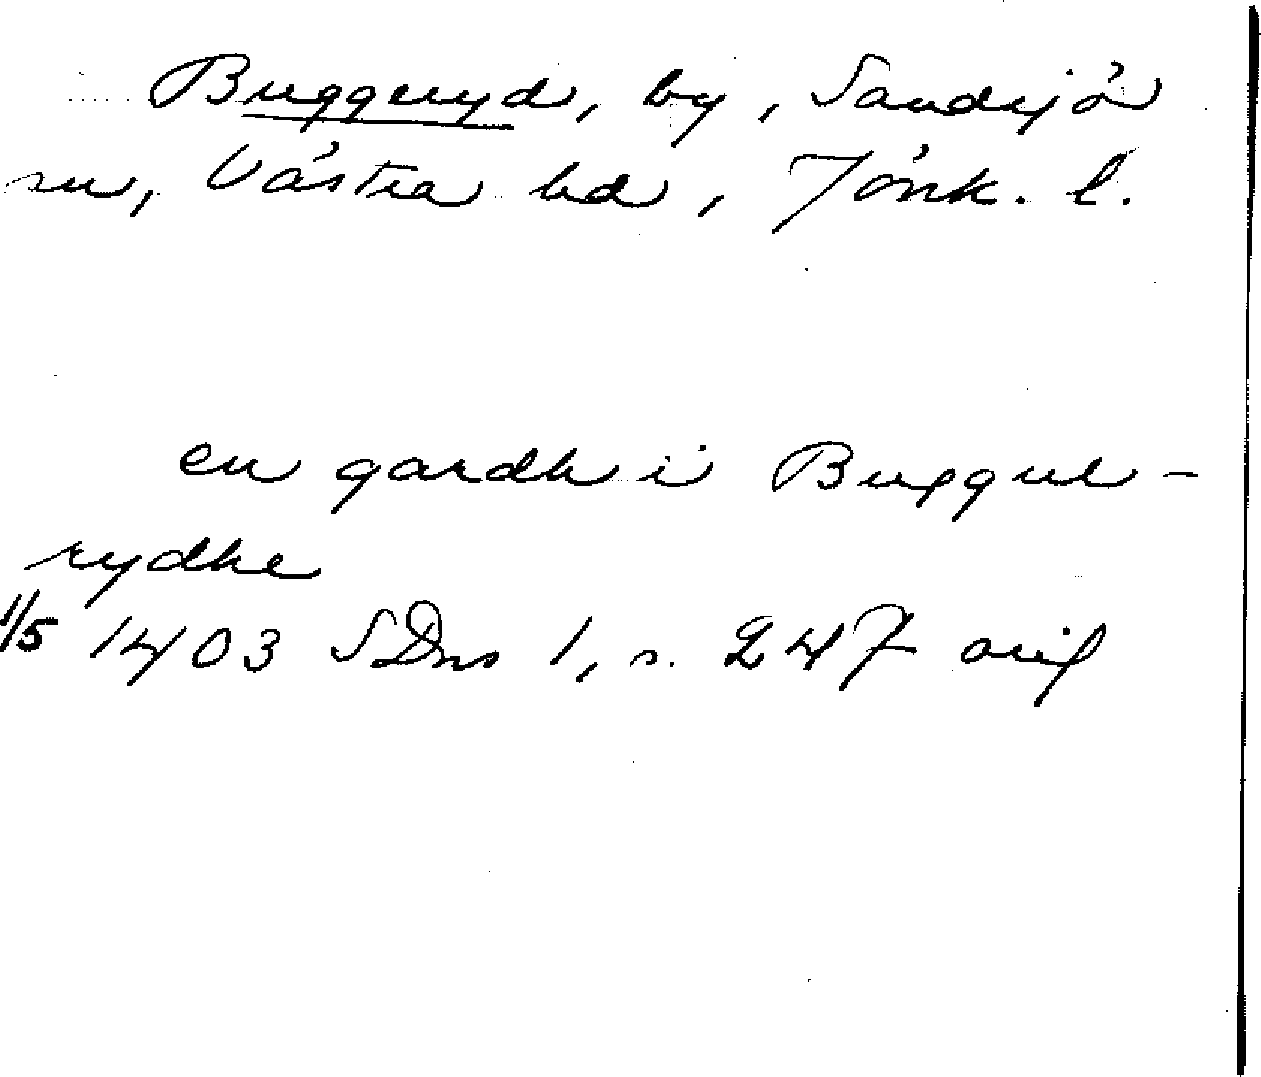 Buggeryd, by, Sandsjö
sn, Västra hd, Jönk. l.
en gardh i Buggul-
rydhe
1/5 1403 SDns 1, s. 247 orig